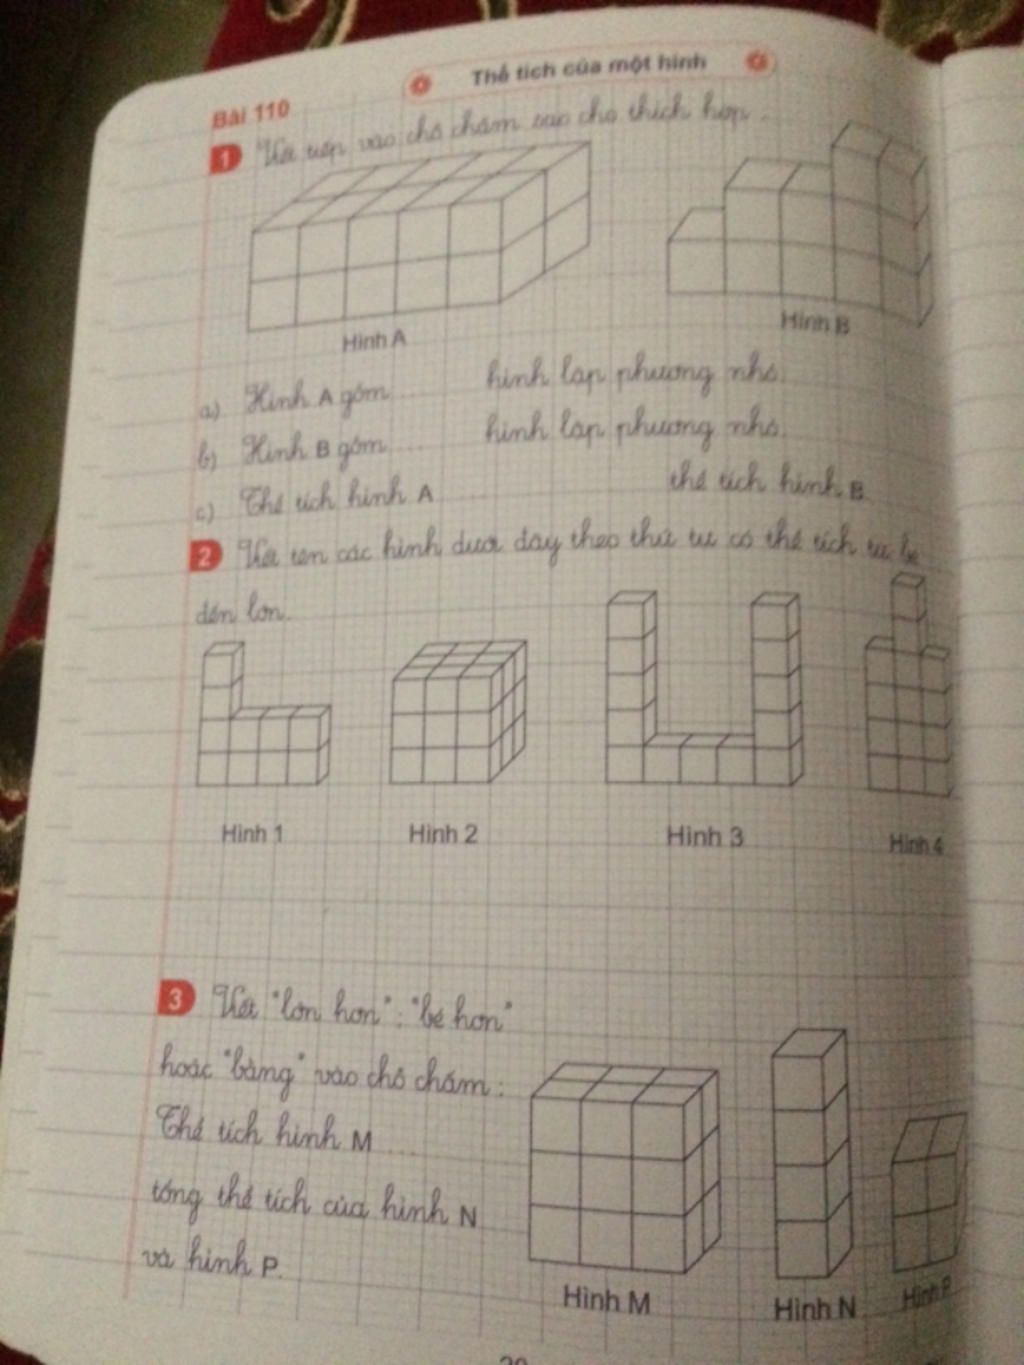 Thể tích của một hình
Bài 110
1 Viết tiếp vào chỗ chấm sao cho thích hợp.
Hình A
Hình B
a) Hình A gồm ... hình lập phương nhỏ.
b) Hình B gồm ... hình lập phương nhỏ.
c) Thể tích hình A ... thể tích hình B.
2 Viết tên các hình dưới đây theo thứ tự có thể tích từ bé
đến lớn.
Hình 1
Hình 2
Hình 3
Hình 4
3 Viết "lớn hơn"; "bé hơn"
hoặc "bằng" vào chỗ chấm:
Thể tích hình M ...
tổng thể tích của hình N
và hình P.
Hình M
Hình N
Hình P